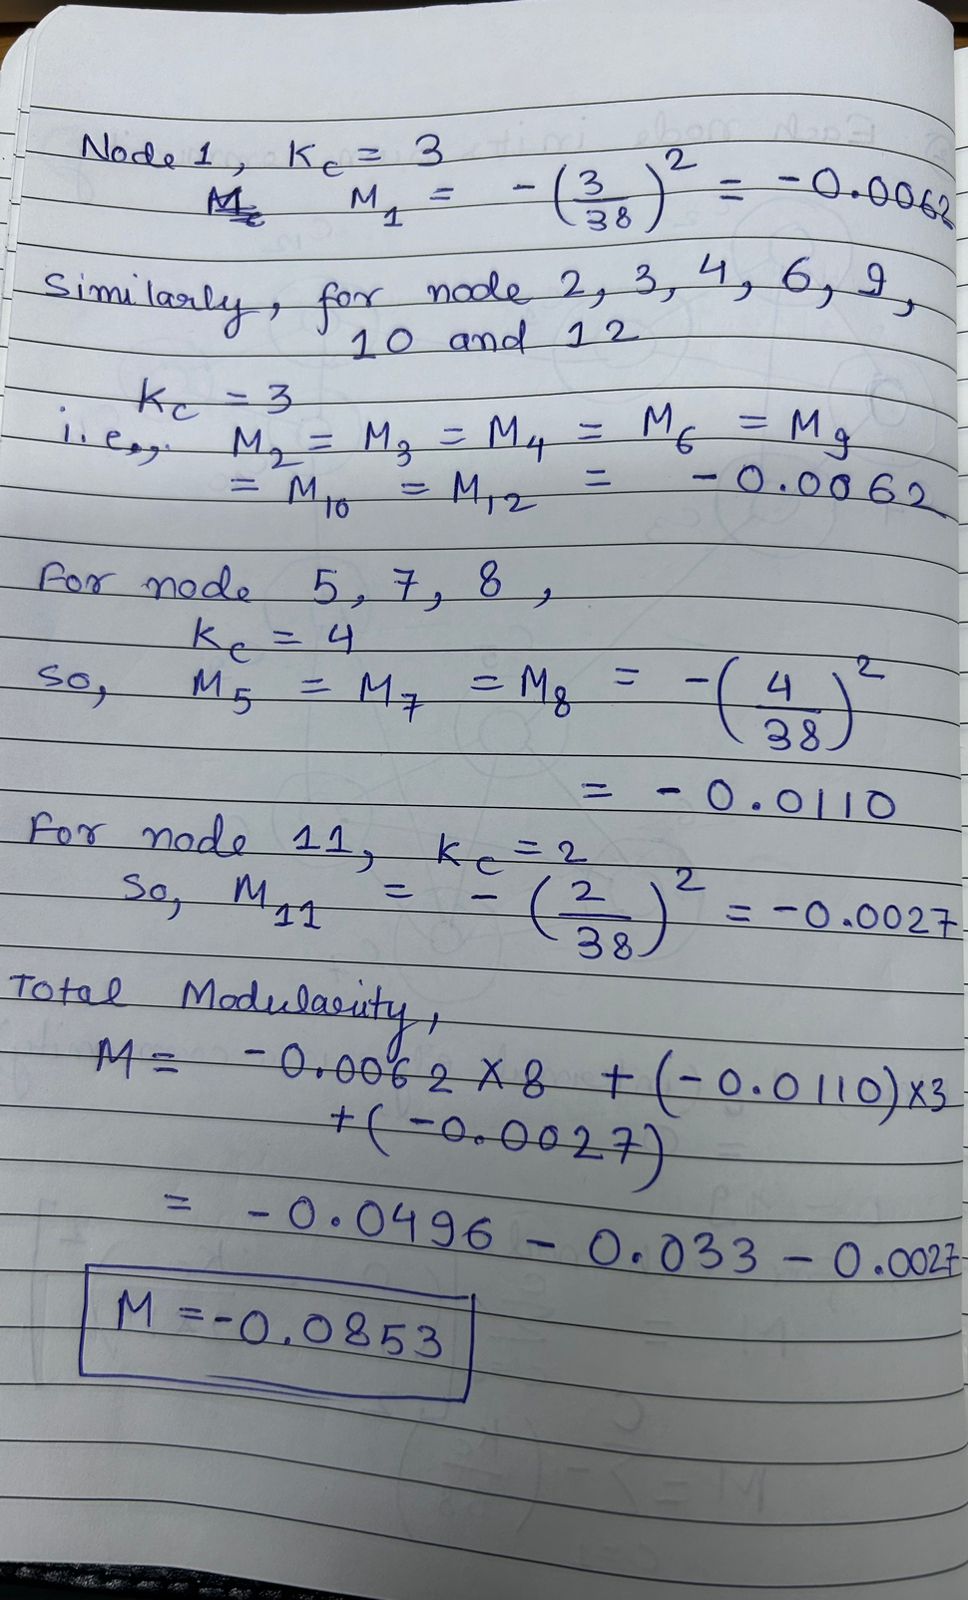 Node 1, Kc = 3
M1 = -(3/38)² = -0.0062
Similarly, for node 2, 3, 4, 6, 9,
10 and 12
Kc = 3
i.e., M2 = M3 = M4 = M6 = M9
= M10 = M12 = -0.0062
For node 5, 7, 8,
Kc = 4
So, M5 = M7 = M8 = -(4/38)²
= -0.0110
For node 11, Kc = 2
So, M11 = -(2/38)² = -0.0027
Total Modularity,
M = -0.0062 × 8 + (-0.0110)×3
+(-0.0027)
= -0.0496 - 0.033 - 0.0027
M = -0.0853